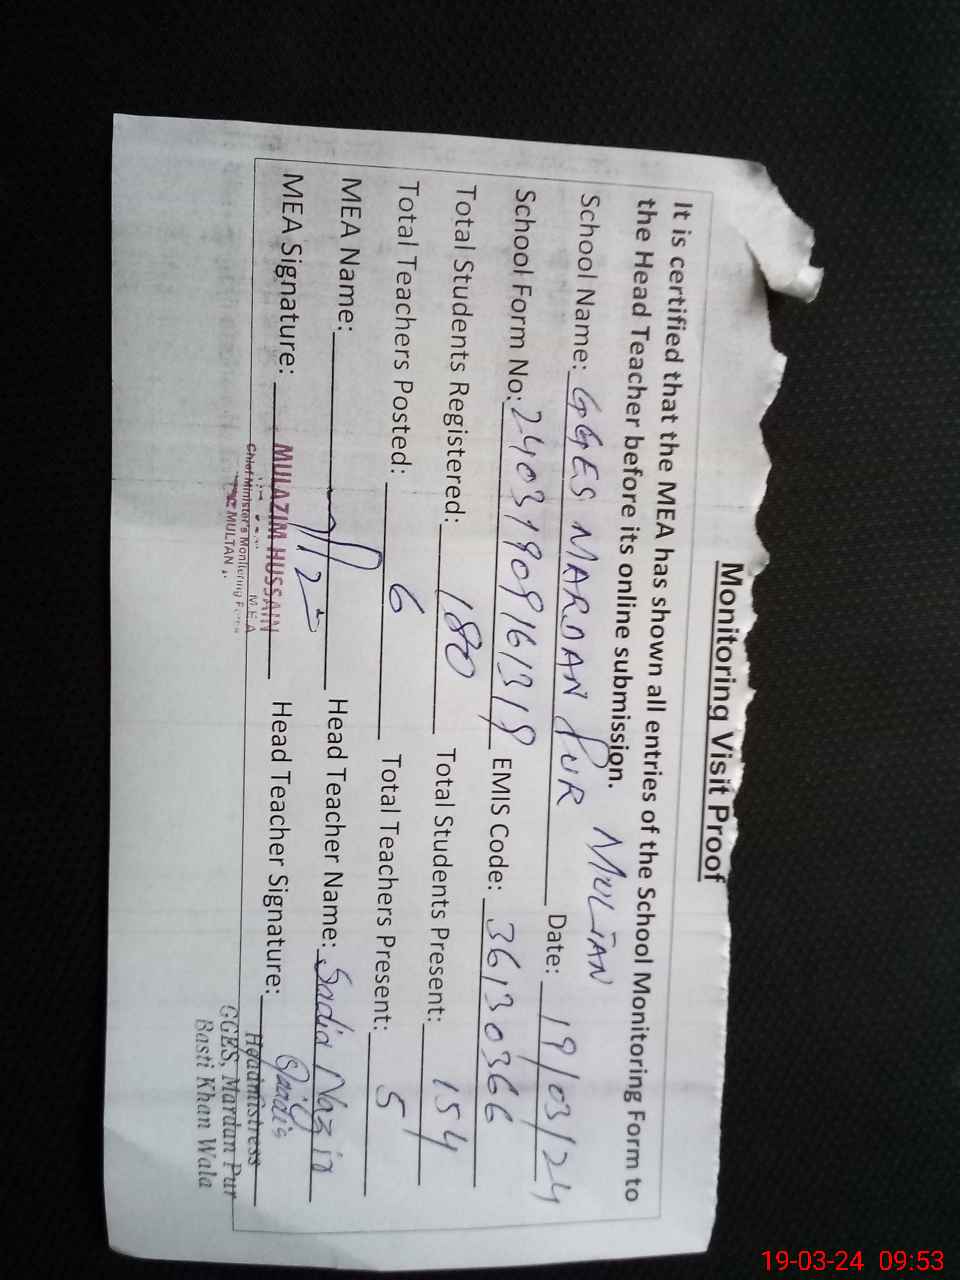 Monitoring Visit Proof
It is certified that the MEA has shown all entries of the School Monitoring Form to
the Head Teacher before its online submission.
School Name: GGES MARDAN PUR MULTAN Date: 19/03/24
School Form No: 24031909161318 EMIS Code: 36130366
Total Students Registered: 180 Total Students Present: 154
Total Teachers Posted: 6 Total Teachers Present: 5
MEA Name: Head Teacher Name: Sadia Nazin
MEA Signature: MULAZIM HUSSAIN Head Teacher Signature:
M.E.A
Chief Minister's Monitoring Force
MULTAN
Headmistress
GGES, Mardan Pur
Basti Khan Wala
19-03-24 09:53